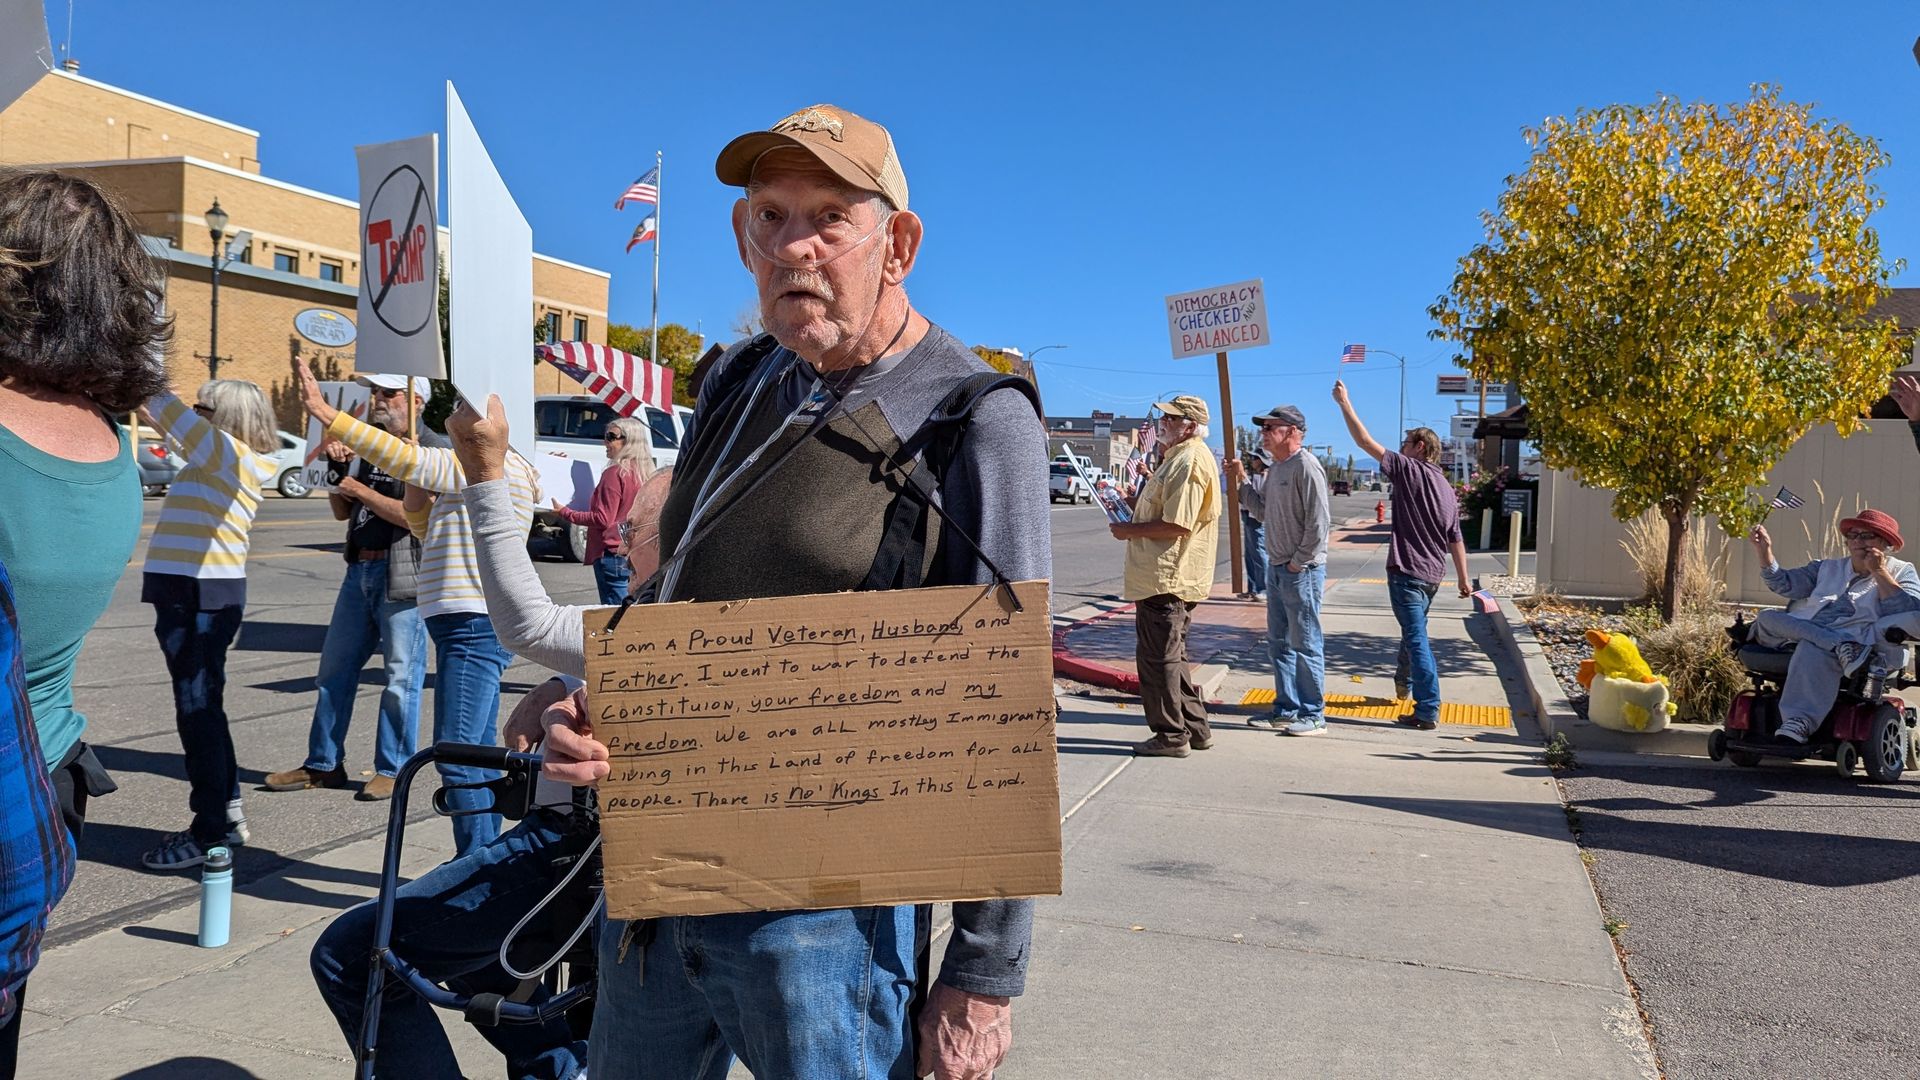 TRUMP
LIBRARY
NO K
"DEMOCRACY"
"CHECKED" AND
BALANCED
SERVICE
I am A Proud Veteran, Husband, and
Father. I went to war to defend the
Constituion, your freedom and my
freedom. We are ALL mostley Immigrants
Living in this Land of freedom for ALL
people. There is no' Kings In this Land.